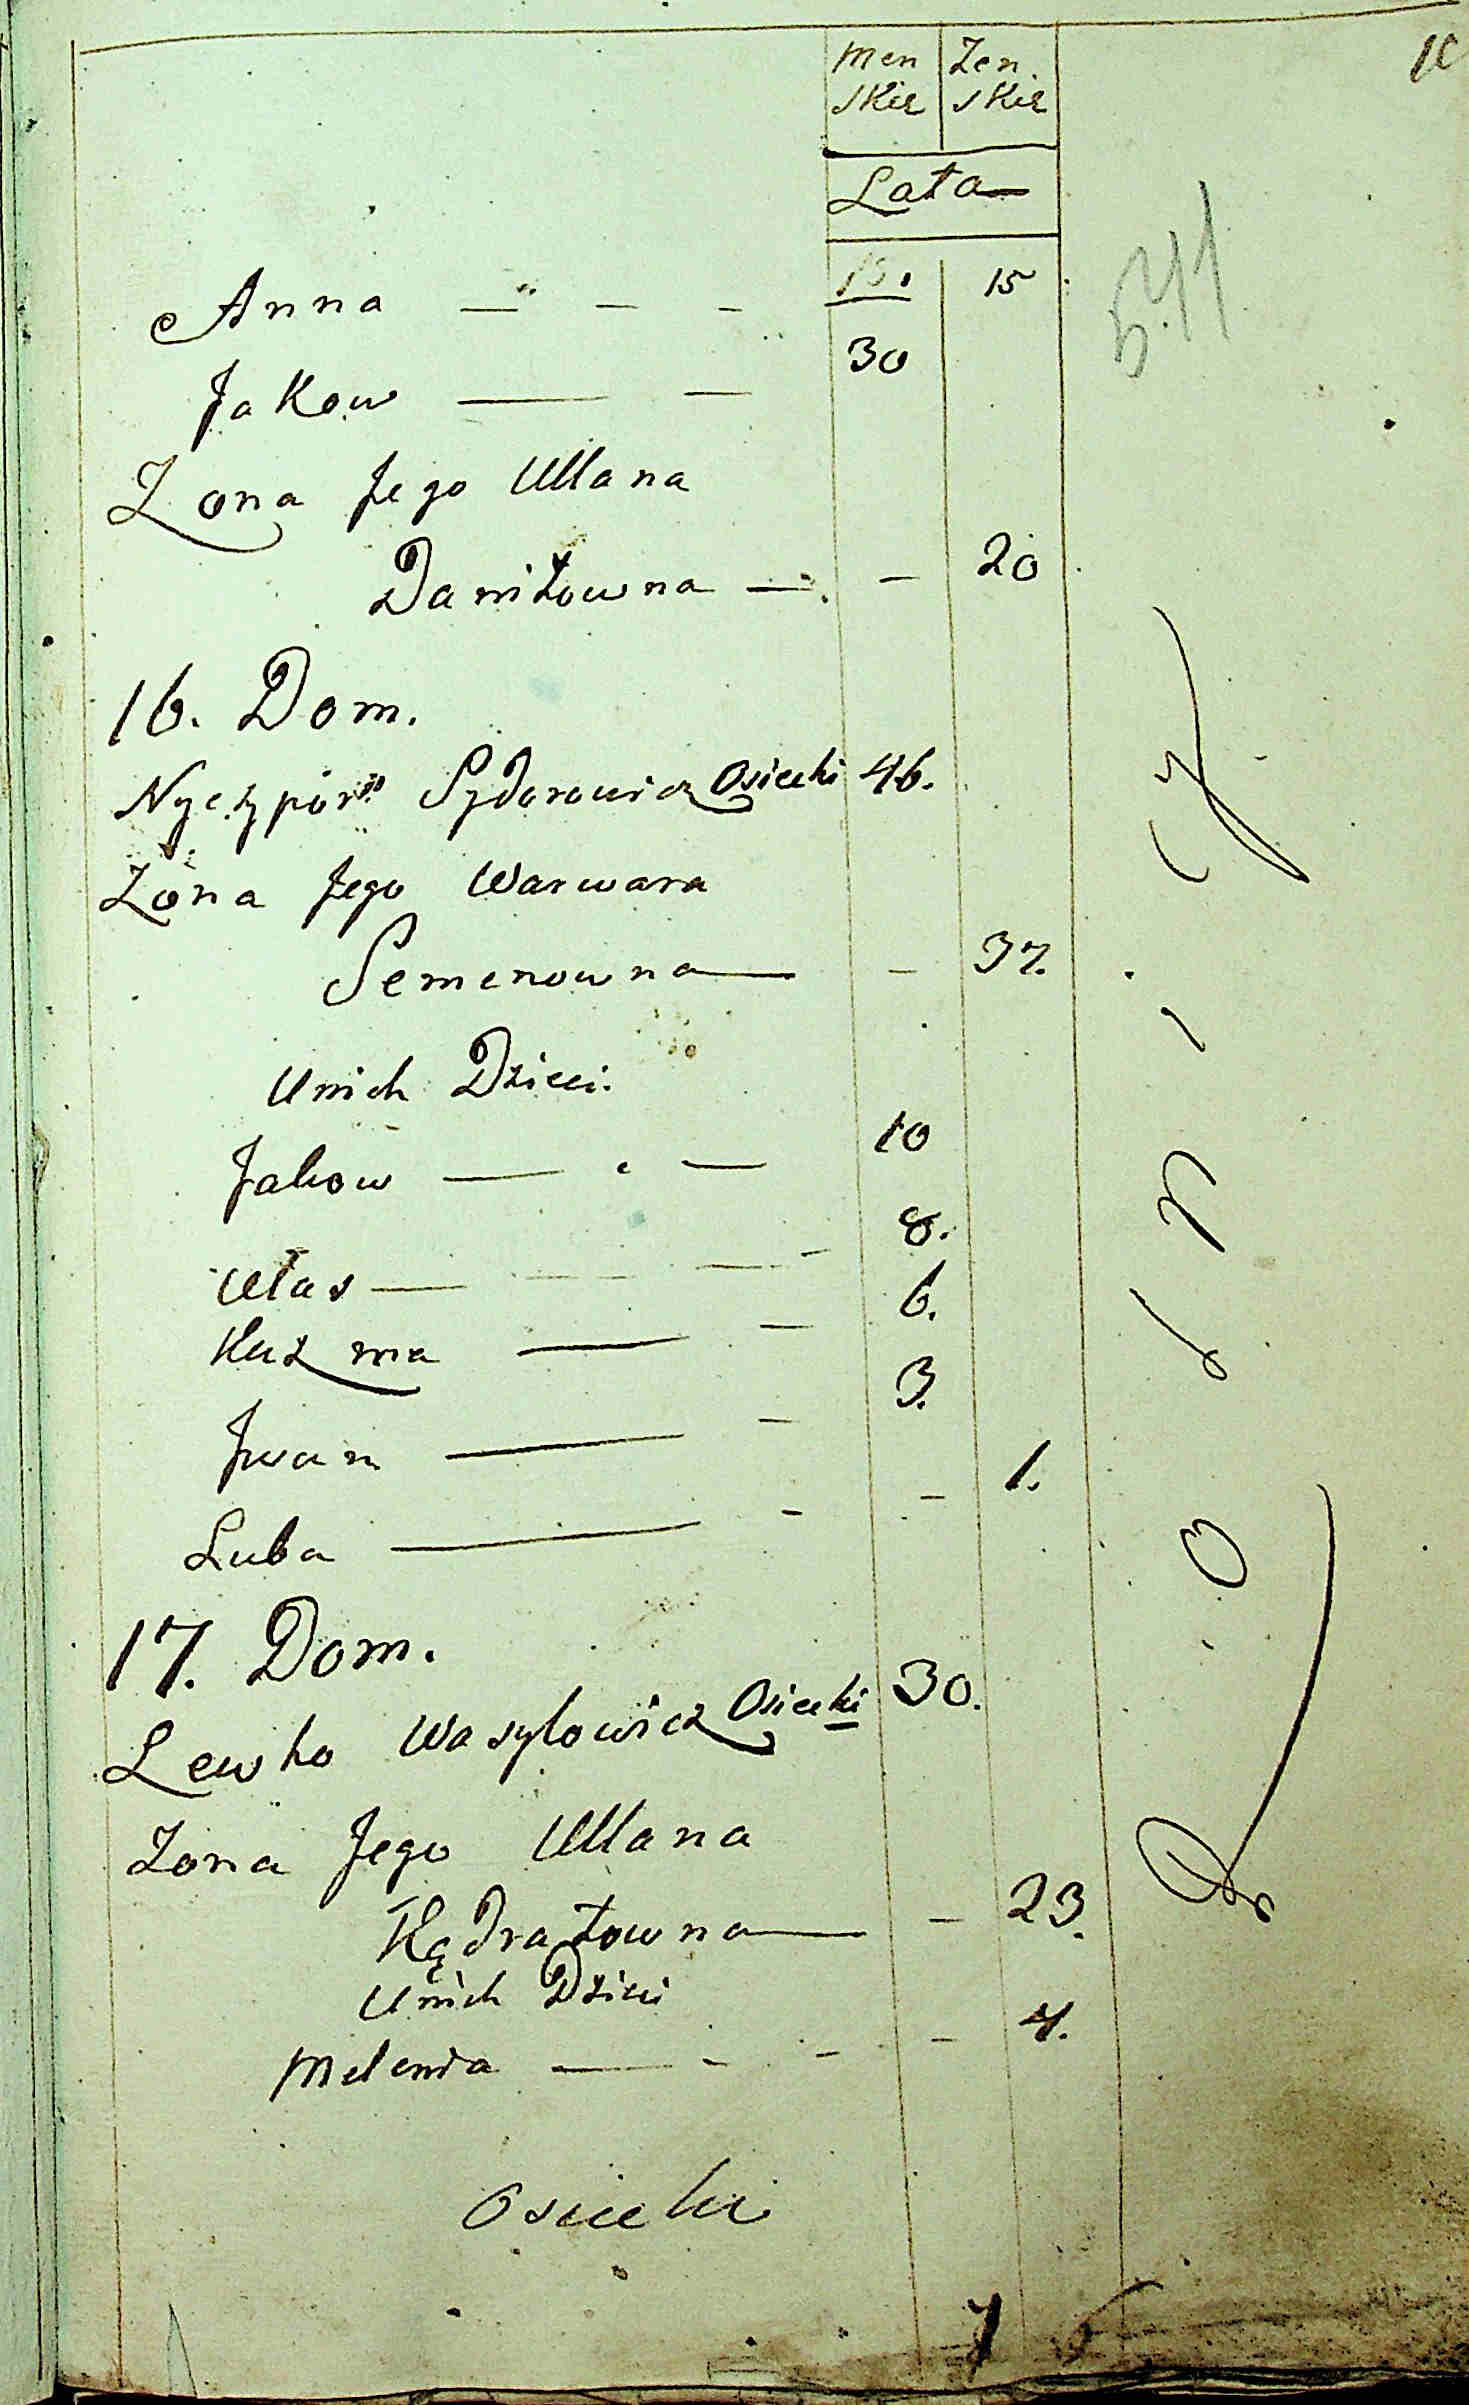 Men Zen.
skie skie
Lata
Anna — — - 15
Jakow — — 30
Zona Jego Ullana
Daniłowna — - 20
16. Dom.
Nyczypór Sydorowicz Osiecki 46.
Zona Jego Warwara
Semenowna — - 37.
Unich Dzieci.
Jakow — — 10
Ułas — — - 8.
Kuzma — - 6.
Jwan — - 3.
Luba — - - 1.
17. Dom.
Lewko Wasylowicz Osiecki 30.
Zona Jego Ullana
Kądratowna — - 23.
Unich Dzieci
Melania — - - - 4.
Osiecki
7